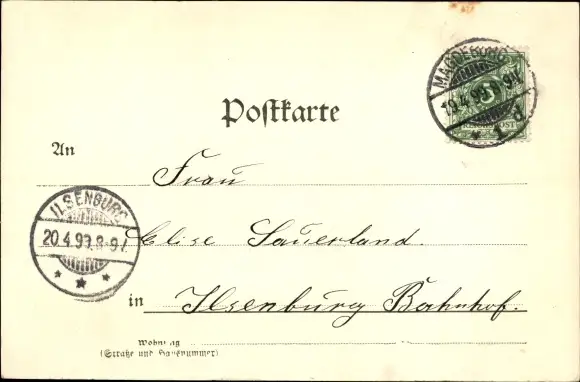 MAGDEBURG
19.4.99.8-9V.
* 1 d
REICHSPOST
Postkarte
An
Frau
ILSENBURG
20.4.99.8-9V.
* * *
Elise Sauerland.
in Ilsenburg Bahnhof.
Wohnung
(Straße und Hausnummer)